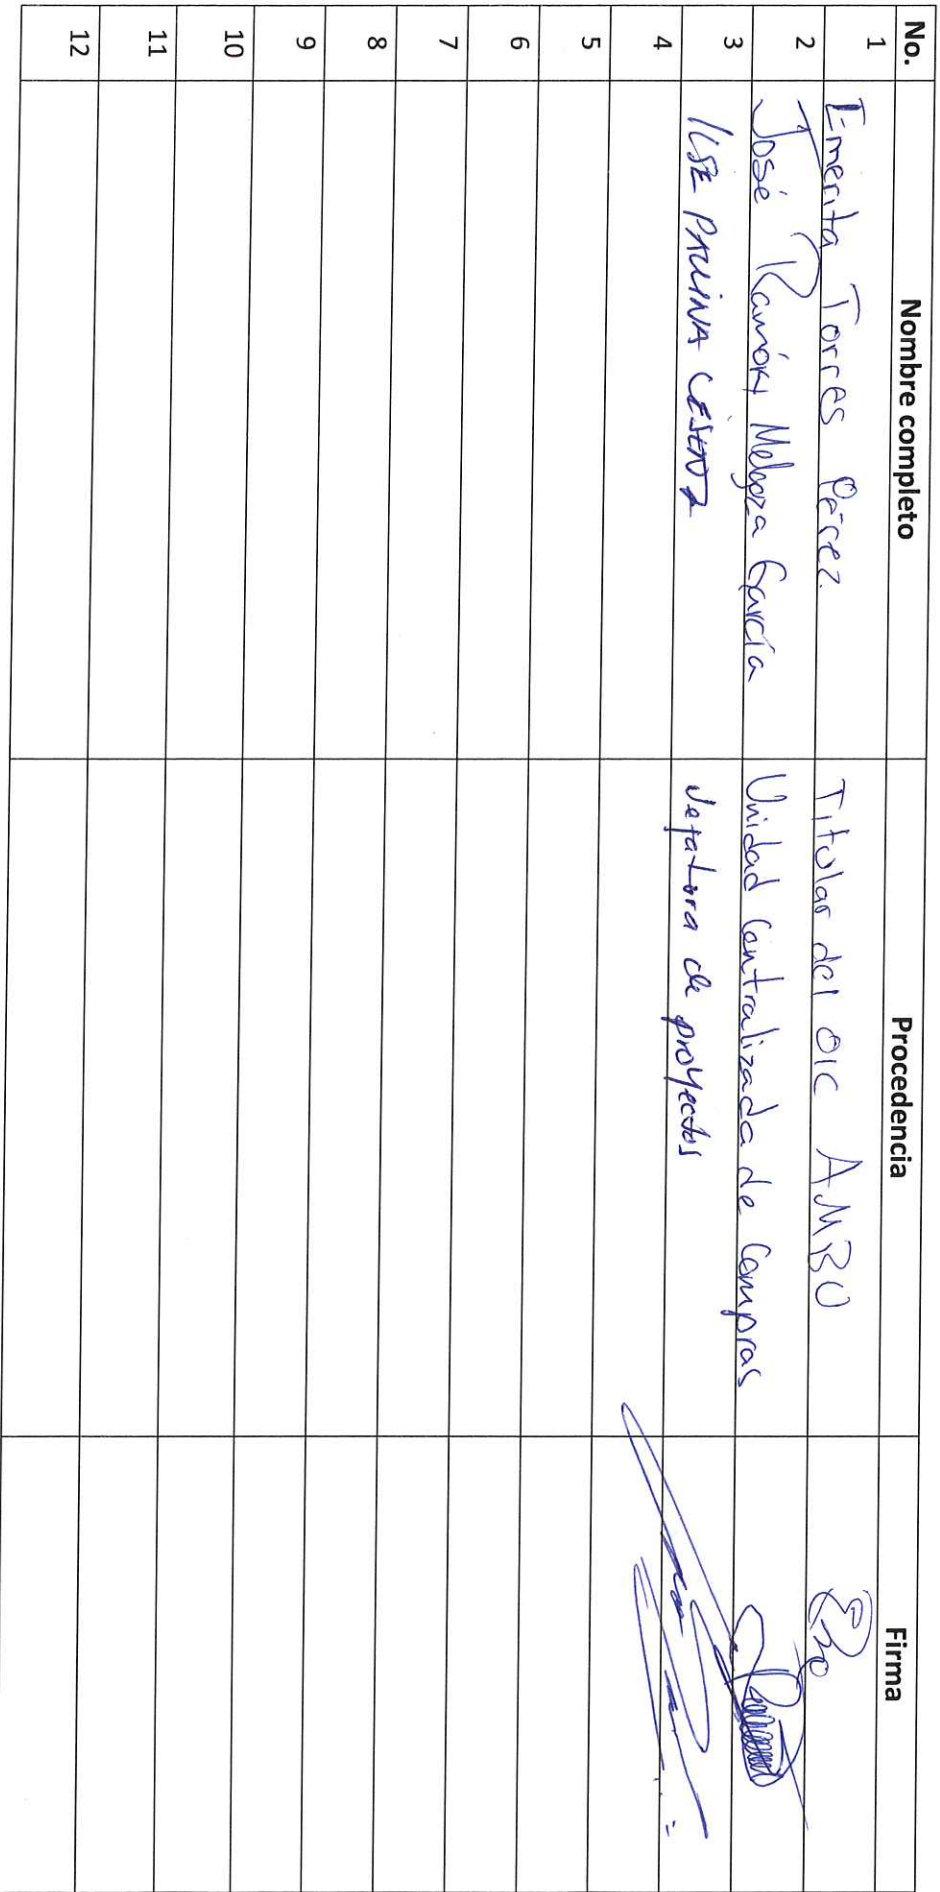 No. Nombre completo Procedencia Firma
1 Emerita Torres Pérez. Titular del OIC AMBU
2 José Ramón Melgoza García Unidad Centralizada de Compras
3 ILSE PAULINA Jefatura de proyectos
4
5
6
7
8
9
10
11
12